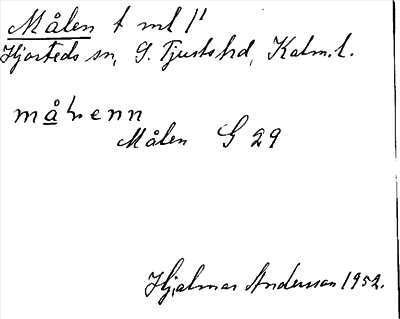 Målen t ml 1¹
Hjorteds sn, S. Tjusts hd, Kalm. l.
målenn
Målen G 29
Hjalmar Andersson 1952.